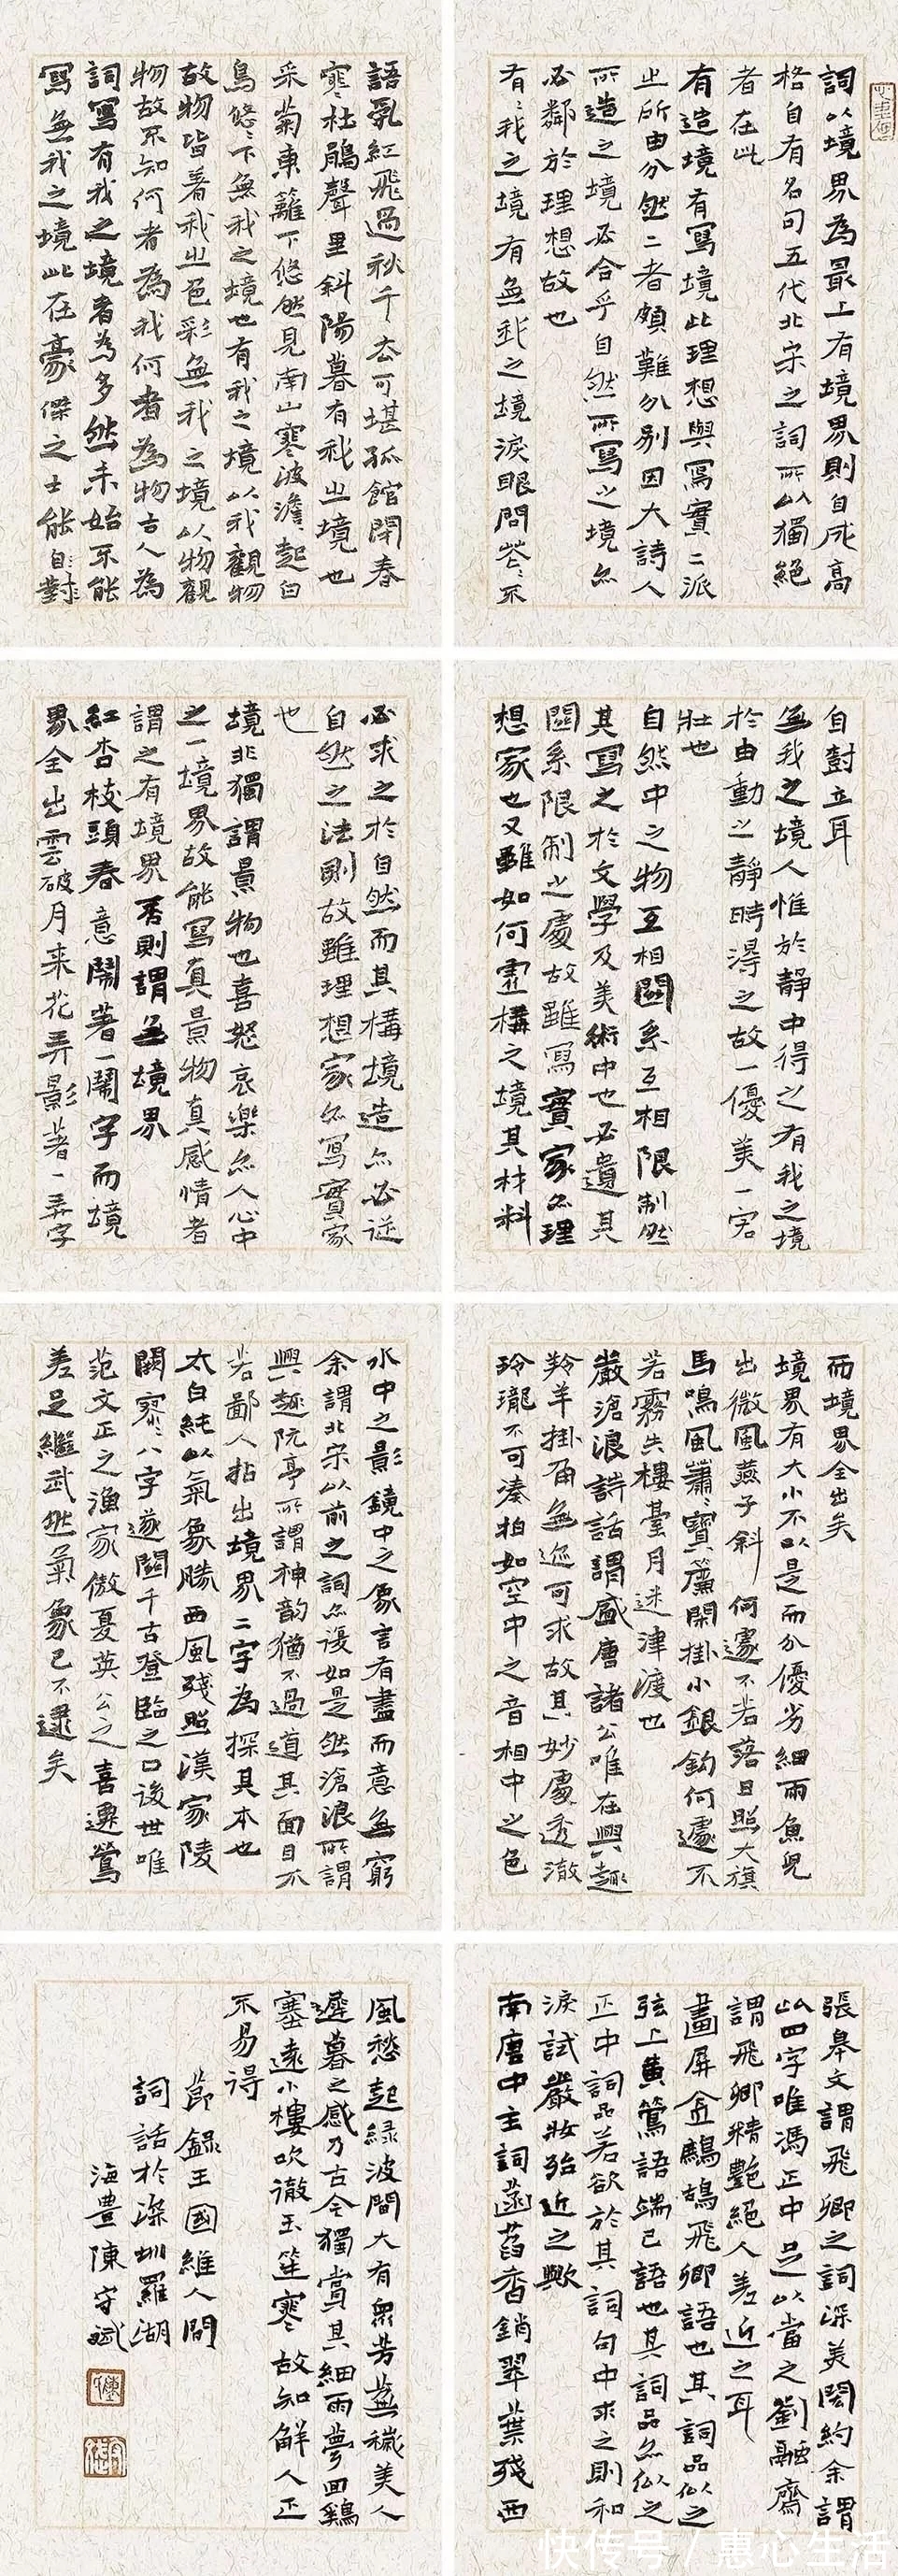 詞以境界為最上有境界則自成高
格自有名句五代北宋之詞所以獨絕
者在此
有造境有寫境此理想與寫實二派
之所由分然二者頗難分別因大詩人
所造之境必合乎自然所寫之境亦
必鄰於理想故也
有〻我之境有無我之境淚眼問花〻不
語亂紅飛過秋千去可堪孤館閉春
寒杜鵑聲里斜陽暮有我之境也
采菊東籬下悠然見南山寒波澹〻起白
鳥悠〻下無我之境也有我之境以我觀物
故物皆著我之色彩無我之境以物觀
物故不知何者為我何者為物古人為
詞寫有我之境者為多然未始不能
寫無我之境此在豪傑之士能自對
自對立耳
無我之境人惟於靜中得之有我之境
於由動之靜時得之故一優美一宏
壯也
自然中之物互相關系互相限制然
其寫之於文學及美術中也必遺其
關系限制之處故雖寫實家亦理
想家也又雖如何虛構之境其材料
必求之於自然而其構境造亦必從
自然之法則故雖理想家亦寫實家
也
境非獨謂景物也喜怒哀樂亦人心中
之一境界故能寫真景物真感情者
謂之有境界否則謂無境界
紅杏枝頭春意鬧著一鬧字而境
界全出雲破月来花弄影著一弄字
而境界全出矣
境界有大小不以是而分優劣細雨魚兒
出微風燕子斜何遽不若落日照大旗
馬鳴風蕭〻寶簾閑掛小銀鈎何遽不
若霧失樓臺月迷津渡也
嚴滄浪詩話謂盛唐諸公唯在興趣
羚羊掛角無迹可求故其妙處透澈
玲瓏不可湊拍如空中之音相中之色
水中之影鏡中之象言有盡而意無窮
余謂北宋以前之詞亦復如是然滄浪所謂
興趣阮亭所謂神韵猶不過道其面目不
若鄙人拈出境界二字為探其本也
太白純以氣象勝西風殘照漢家陵
闕寥〻八字遂關千古登臨之口後世唯
范文正之漁家傲夏英公之喜遷鶯
差足繼武然氣象已不逮矣
張皋文謂飛卿之詞深美閎約余謂
此四字唯馮正中足以當之劉融齋
謂飛卿精艷絕人差近之耳
畫屏金鷓鴣飛卿語也其詞品似之
弦上黃鶯語端己語也其詞品亦似之
正中詞品若欲於其詞句中求之則和
淚試嚴妝殆近之歟
南唐中主詞菡萏香銷翠葉殘西
風愁起綠波間大有衆芳蕪穢美人
遲暮之感乃古今獨賞其細雨夢回鷄
塞遠小樓吹徹玉笙寒故知解人正
不易得
節錄王國維人間
詞話於深圳羅湖
海豐陳守斌
快传号／惠心生活